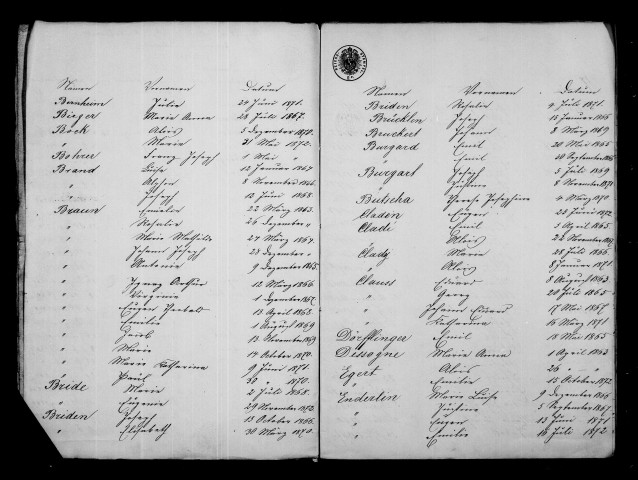 Namen Vornamen Datum
Bernheim Julie 24 Juni 1871.
Bieger Marie Anna 28 Juli 1867.
Böck Alois 5 Dezember 1870.
" Marie 31 Mai 1872.
Bohrer Franz Joseph 1 Mai "
Brand Luise 12 Januar 1864
" 8 November 1866.
" Joseph 12 Juni 1868.
Braun Emelie 22 März 1863.
" Rosalie 26 Dezember "
" Marie Mathilde
" Johann Joseph 27 März 1864.
" Antonie 23 Dezember "
" 9 Dezember 1865.
" Ignaz Arthur 12 März 1866
" Virginie 1 Dezember 1867.
" Eugen 13 April 1868.
" Emilie 1 August 1869
" Jacob 13 November 1869
" Marie 14 October 1870.
" Marie Katharina 9 Juni 1871.
" Paul 30 " 1870.
Bride Marie 2 Juli 1868.
" Eugenie 29 November 1872.
Briden Joseph 13 October 1866.
" Elisabeth 30 März 1870.
Namen Vornamen Datum
Briden Rosalie 4 Juli 1871.
Brücklin Joseph 15 Januar 1866
Bruckert Johann 8 März 1869
Burgard Emil 20 Mai 1865
" Emil 10 September
Burgart Joseph 5 Juli 1869
" Justine 8 November
Butscha Therese Josephine 4 März 1870
Claden Eugen 23 Juni 1872.
Clade Emil 5 April 1865
" Alois 22 November
Clady Marie 28 Juli 1866
" Alois 8 Januar 1871
Clauss Eduard 8 August 1863
" Georg 20 Juli 1865
" Johann Eduard 17 Mai 1867
" Katharina 16 März 1871
Dörfflinger Emil 18 Mai 1865
Dissogne Maria Anna 1 April 1863
Egert Alois 26 " "
" Emilie 15 October 1872
Enderlin Marie Luise 9 Dezember 1866
" Justine 5 September 1867
" Eugen 13 Juni 1871
" Emilie 16 Juli 1872